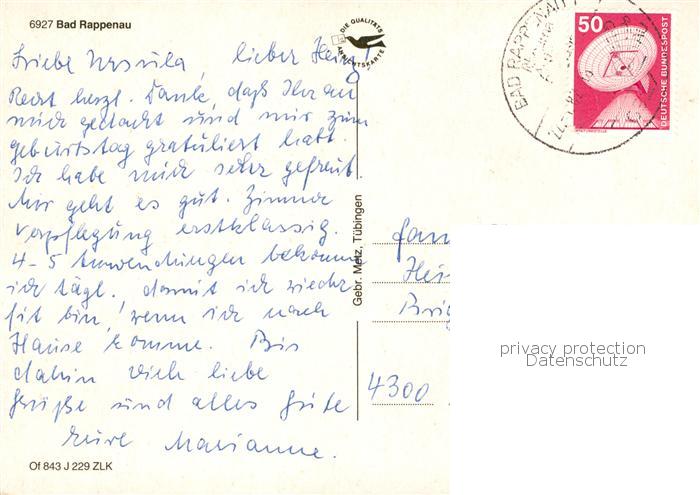 6927 Bad Rappenau
DIE QUALITÄTS
ANSICHTSKARTE
50
DEUTSCHE BUNDESPOST
BAD RAPPENAU 1
Liebe Ursula, lieber Heinz!
Recht herzl. Dank, daß Ihr an
mich gedacht und mir zum
Geburtstag gratuliert habt.
Ich habe mich sehr gefreut.
Mir geht es gut. Zimmer
Verpflegung erstklassig.
4-5 Anwendungen bekomme
ich tägl., damit ich wieder
fit bin, wenn ich nach
Hause komme. Bis
dahin viele liebe
Grüße und alles Gute
Eure Marianne.
Gebr. Metz, Tübingen
Fam
Hei
4300
privacy protection
Datenschutz
Of 843 J 229 ZLK